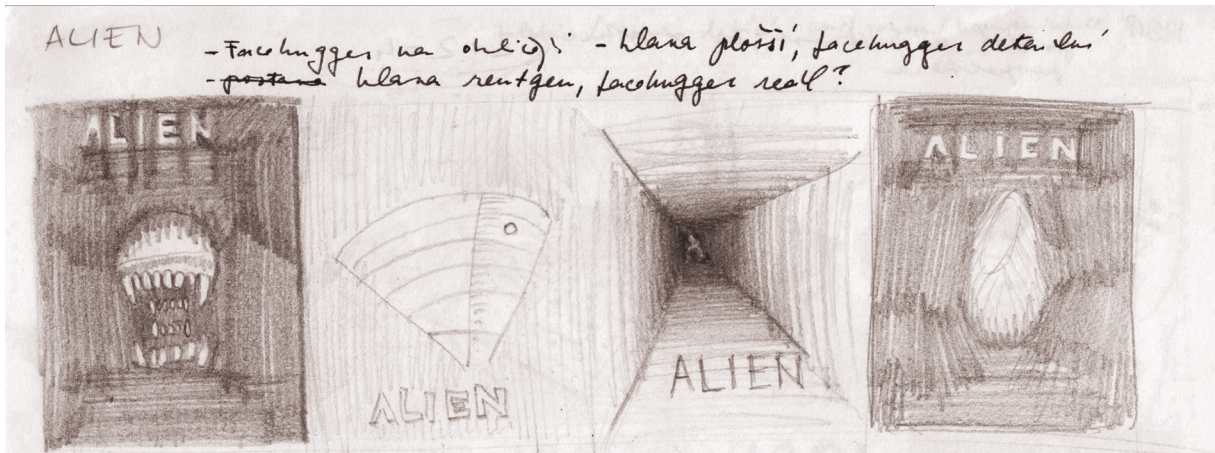 ALIEN
- Facehugger na obličeji - hlava plošší, facehugger detailní
- postava hlava rentgen, facehugger reál?
ALIEN
ALIEN
ALIEN
ALIEN